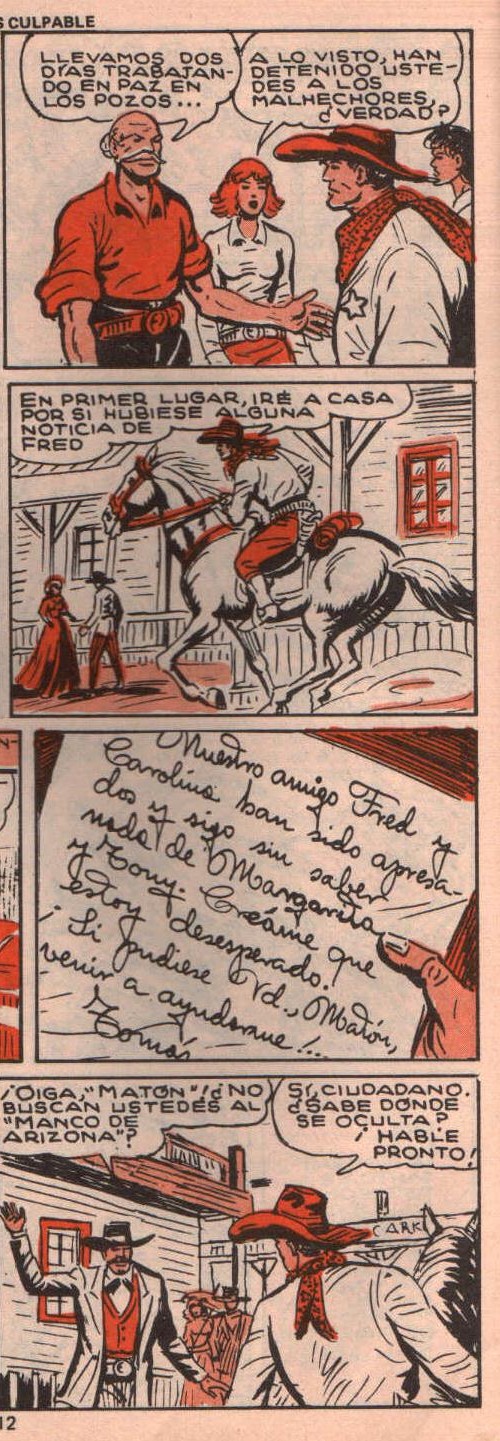 S CULPABLE
LLEVAMOS DOS
DÍAS TRABAJAN-
DO EN PAZ EN
LOS POZOS...
A LO VISTO, HAN
DETENIDO USTE-
DES A LOS
MALHECHORES,
¿VERDAD?
EN PRIMER LUGAR, IRÉ A CASA
POR SI HUBIESE ALGUNA
NOTICIA DE
FRED
Nuestro amigo Fred y
Carolina han sido apresa-
dos y sigo sin saber
nada de Margarita
y Tony. Créame que
estoy desesperado.
¡Si pudiese Vd., Matón,
venir a ayudarme!...
Tomás
¡OIGA, "MATÓN"! ¿NO
BUSCAN USTEDES AL
"MANCO DE
ARIZONA"?
SÍ, CIUDADANO.
¿SABE DÓNDE
SE OCULTA?
¡HABLE
PRONTO!
CARK
12